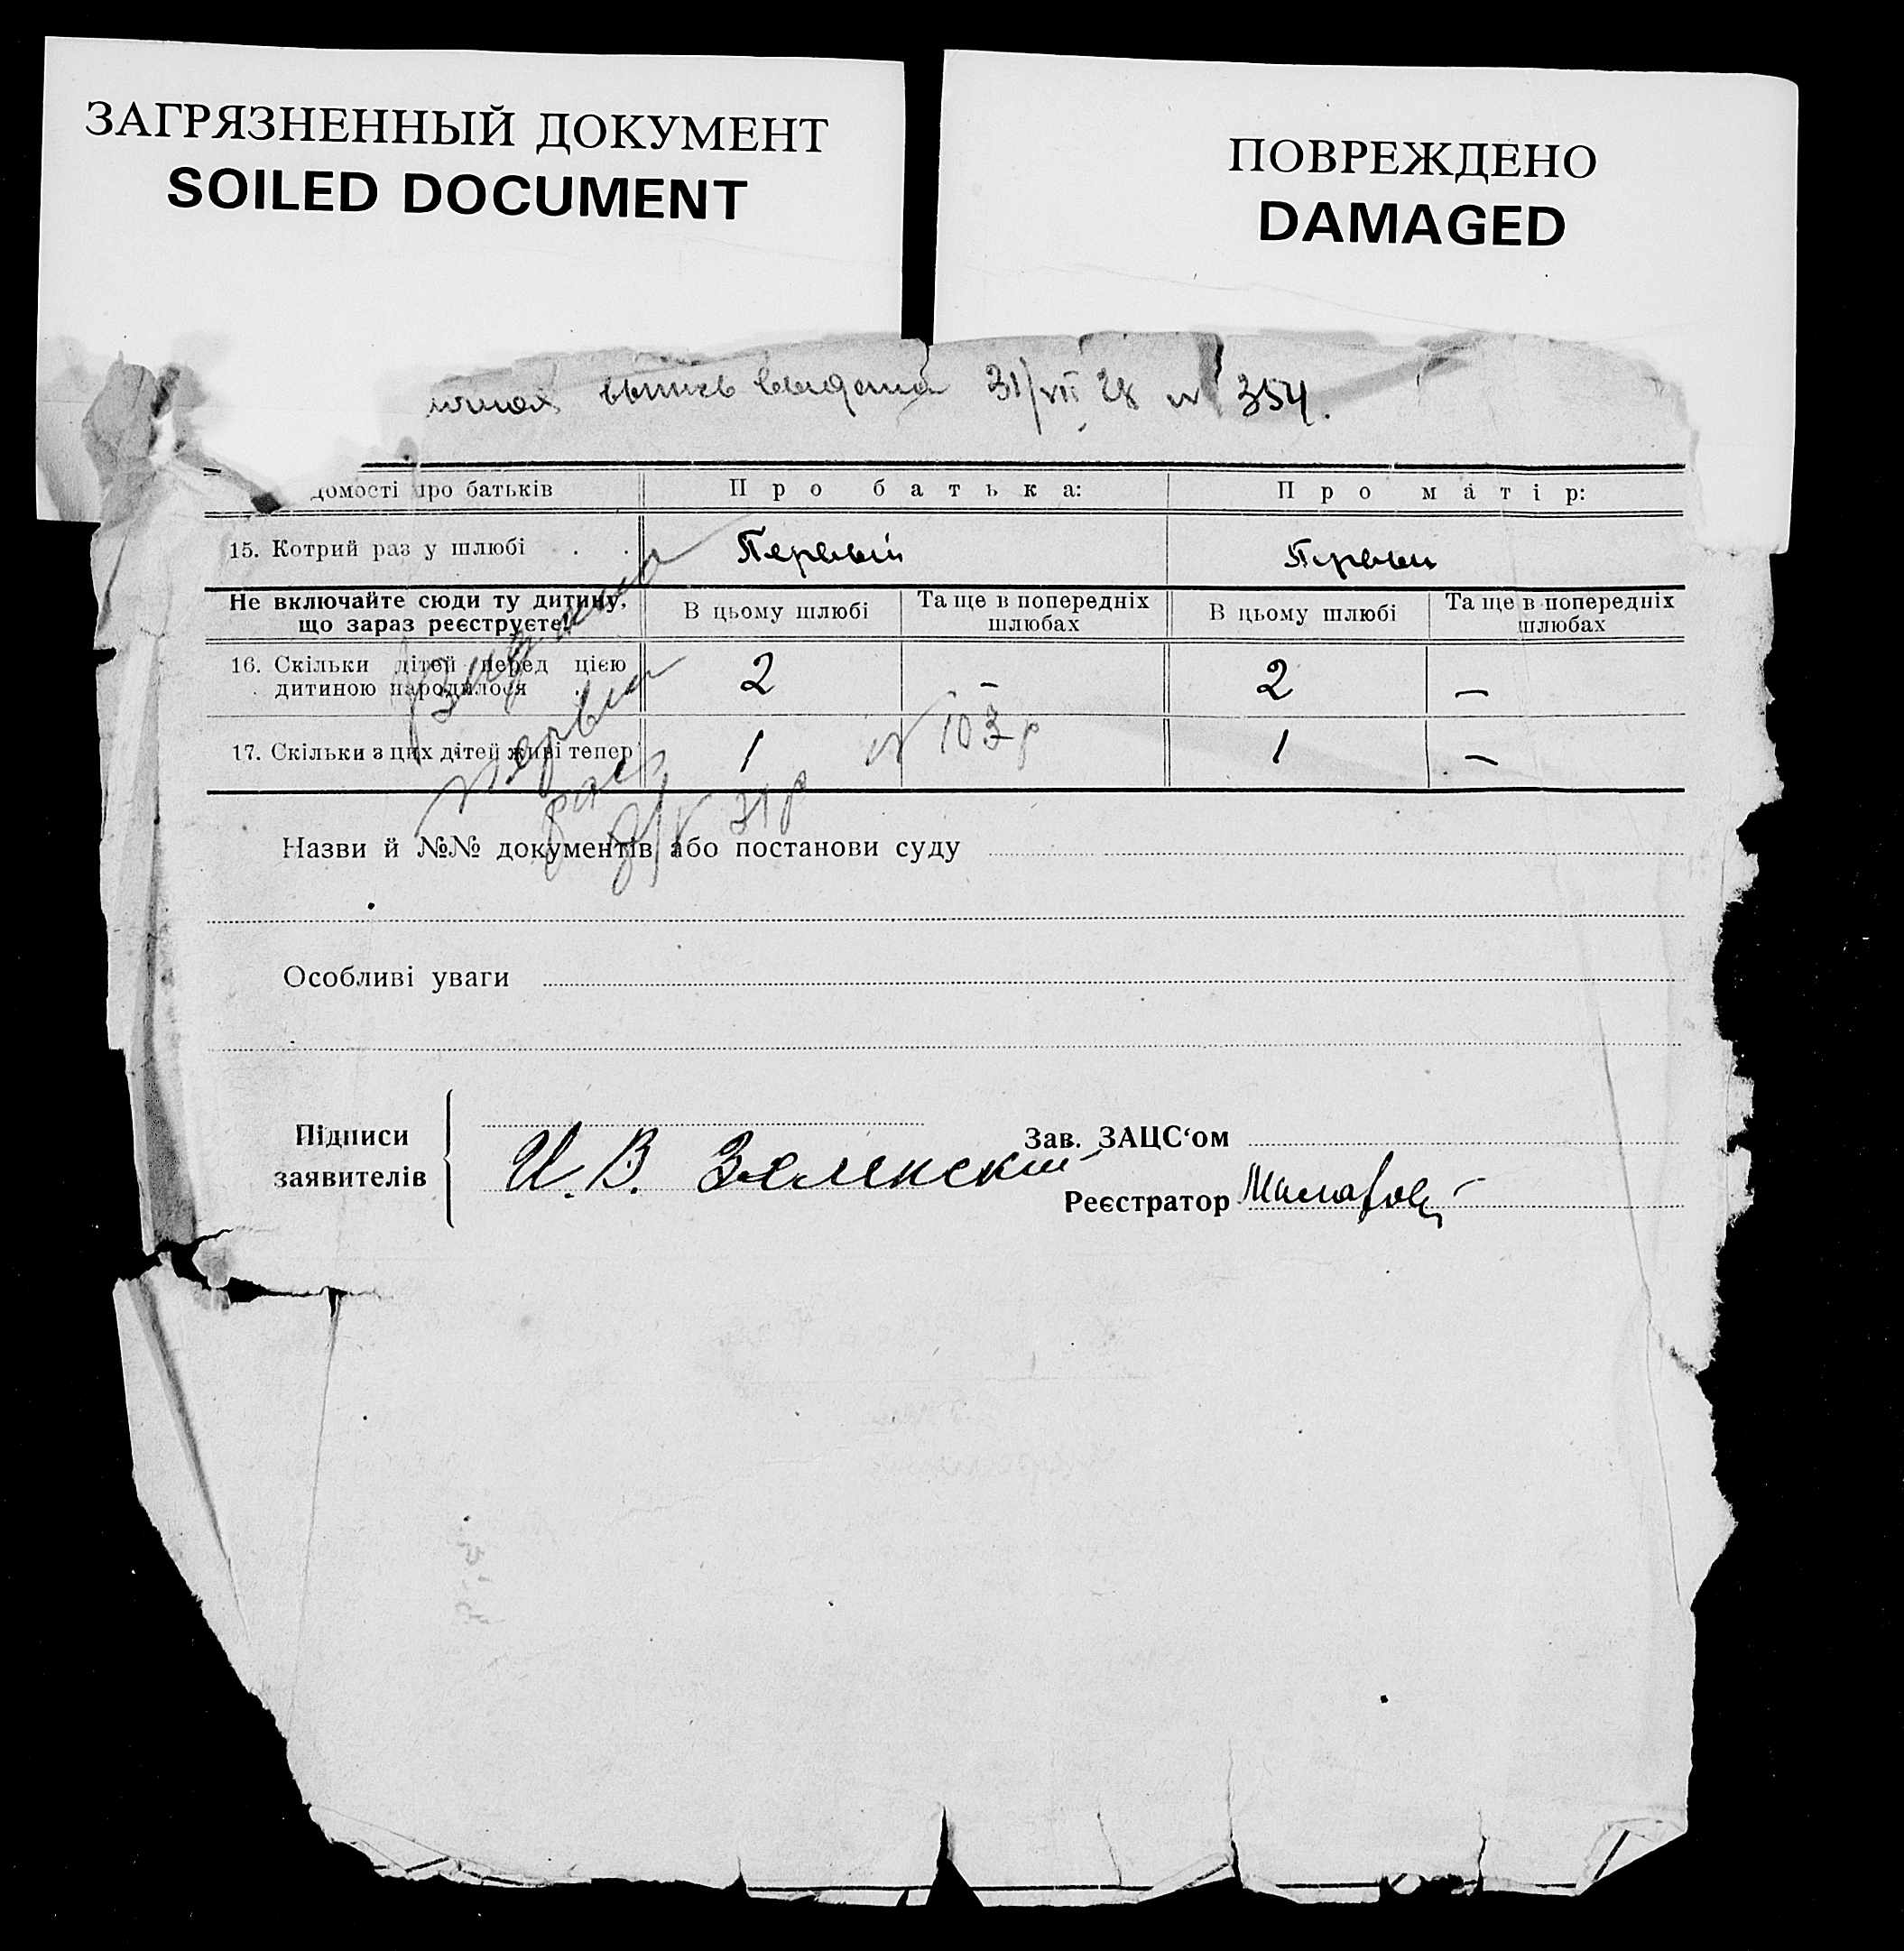 ЗАГРЯЗНЕННЫЙ ДОКУМЕНТ
SOILED DOCUMENT
ПОВРЕЖДЕНО
DAMAGED
выпись выдана 31/VII 28 № 354.
домості про батьків
Про батька:
Про матір:
15. Котрий раз у шлюбі . .
Первый
Первый
Не включайте сюди ту дитину,
що зараз реєструєте!
В цьому шлюбі
Та ще в попередніх
шлюбах
В цьому шлюбі
Та ще в попередніх
шлюбах
16. Скільки дітей перед цією
дитиною народилося
2
–
2
–
17. Скільки з цих дітей живі тепер
1
1
–
Выдана
первый
раз
31 р
№ 103 р
Назви й №№ документів або постанови суду
Особливі уваги
Підписи
заявителів
И. В. Зеленский
Зав. ЗАЦС‘ом
Реєстратор